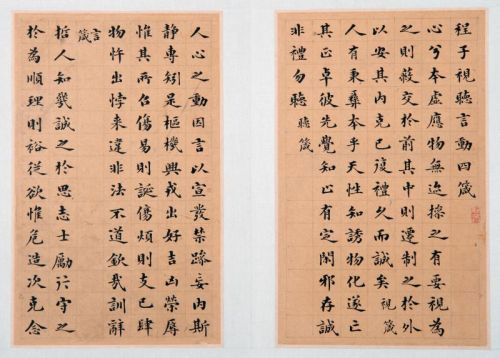 程子視聽言動四箴
心兮本虛應物無迹操之有要視為
之則蔽交於前其中則遷制之於外
以安其内克己復禮久而誠矣 視箴
人有秉彝本乎天性知誘物化遂亡
其正卓彼先覺知止有定閑邪存誠
非禮勿聽 聽箴
人心之動因言以宣發禁躁妄内斯
静專矧是樞機興戎出好吉凶榮辱
惟其所召傷易則誕傷煩則支己肆
物忤出悖来違非法不道欽哉訓辭
言箴
哲人知幾誠之於思志士勵行守之
於為順理則裕從欲惟危造次克念